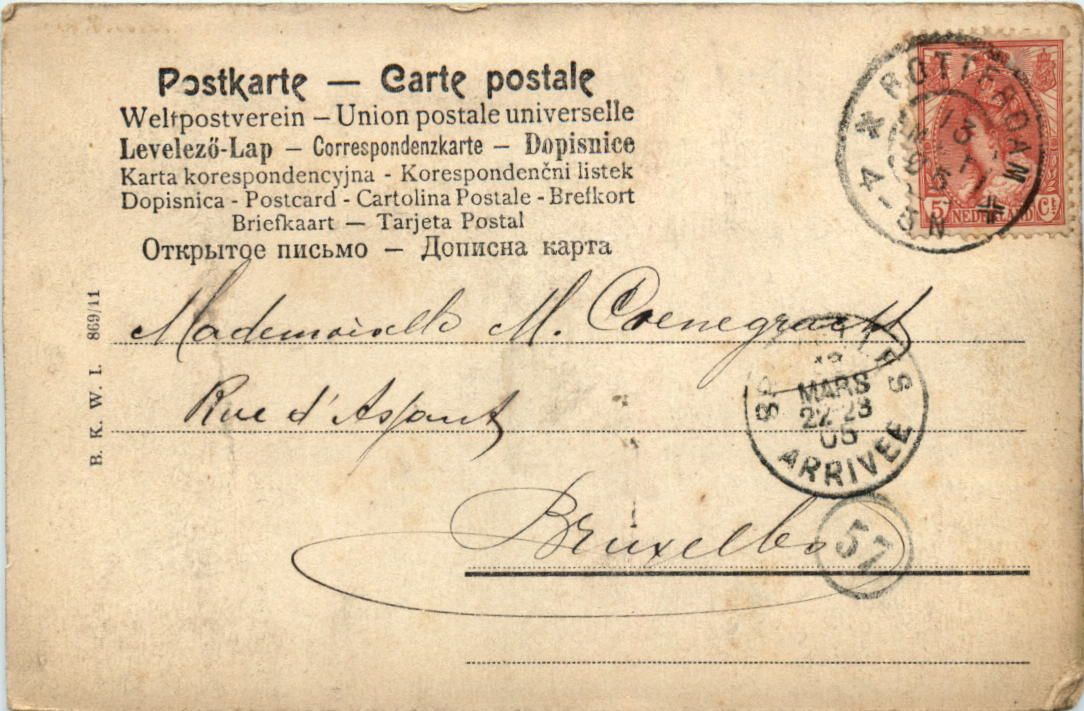 Postkarte — Carte postale
Weltpostverein – Union postale universelle
Levelező-Lap – Correspondenzkarte – Dopisnice
Karta korespondencyjna - Korespondenční listek
Dopisnica - Postcard - Cartolina Postale - Brefkort
Briefkaart — Tarjeta Postal
Открытое письмо — Дописна карта
ROTTERDAM
13
4-5N
5 NEDERLAND Ct
B. K. W. I. 869/11
Mademoiselle M. Coenegracht
Rue d'
Bruxelles
BRUXELLES
MARS
22-23
05
ARRIVEE
57